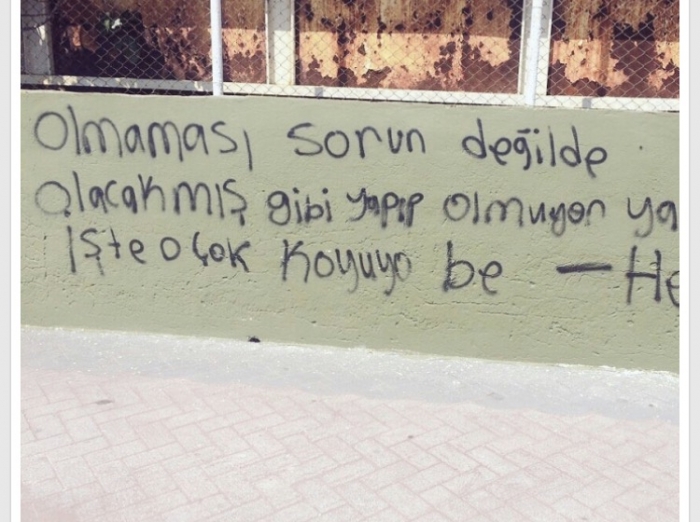 Olmaması sorun değilde
Olacakmış gibi yapıp olmuyor ya
İşte o çok koyuyo be — He